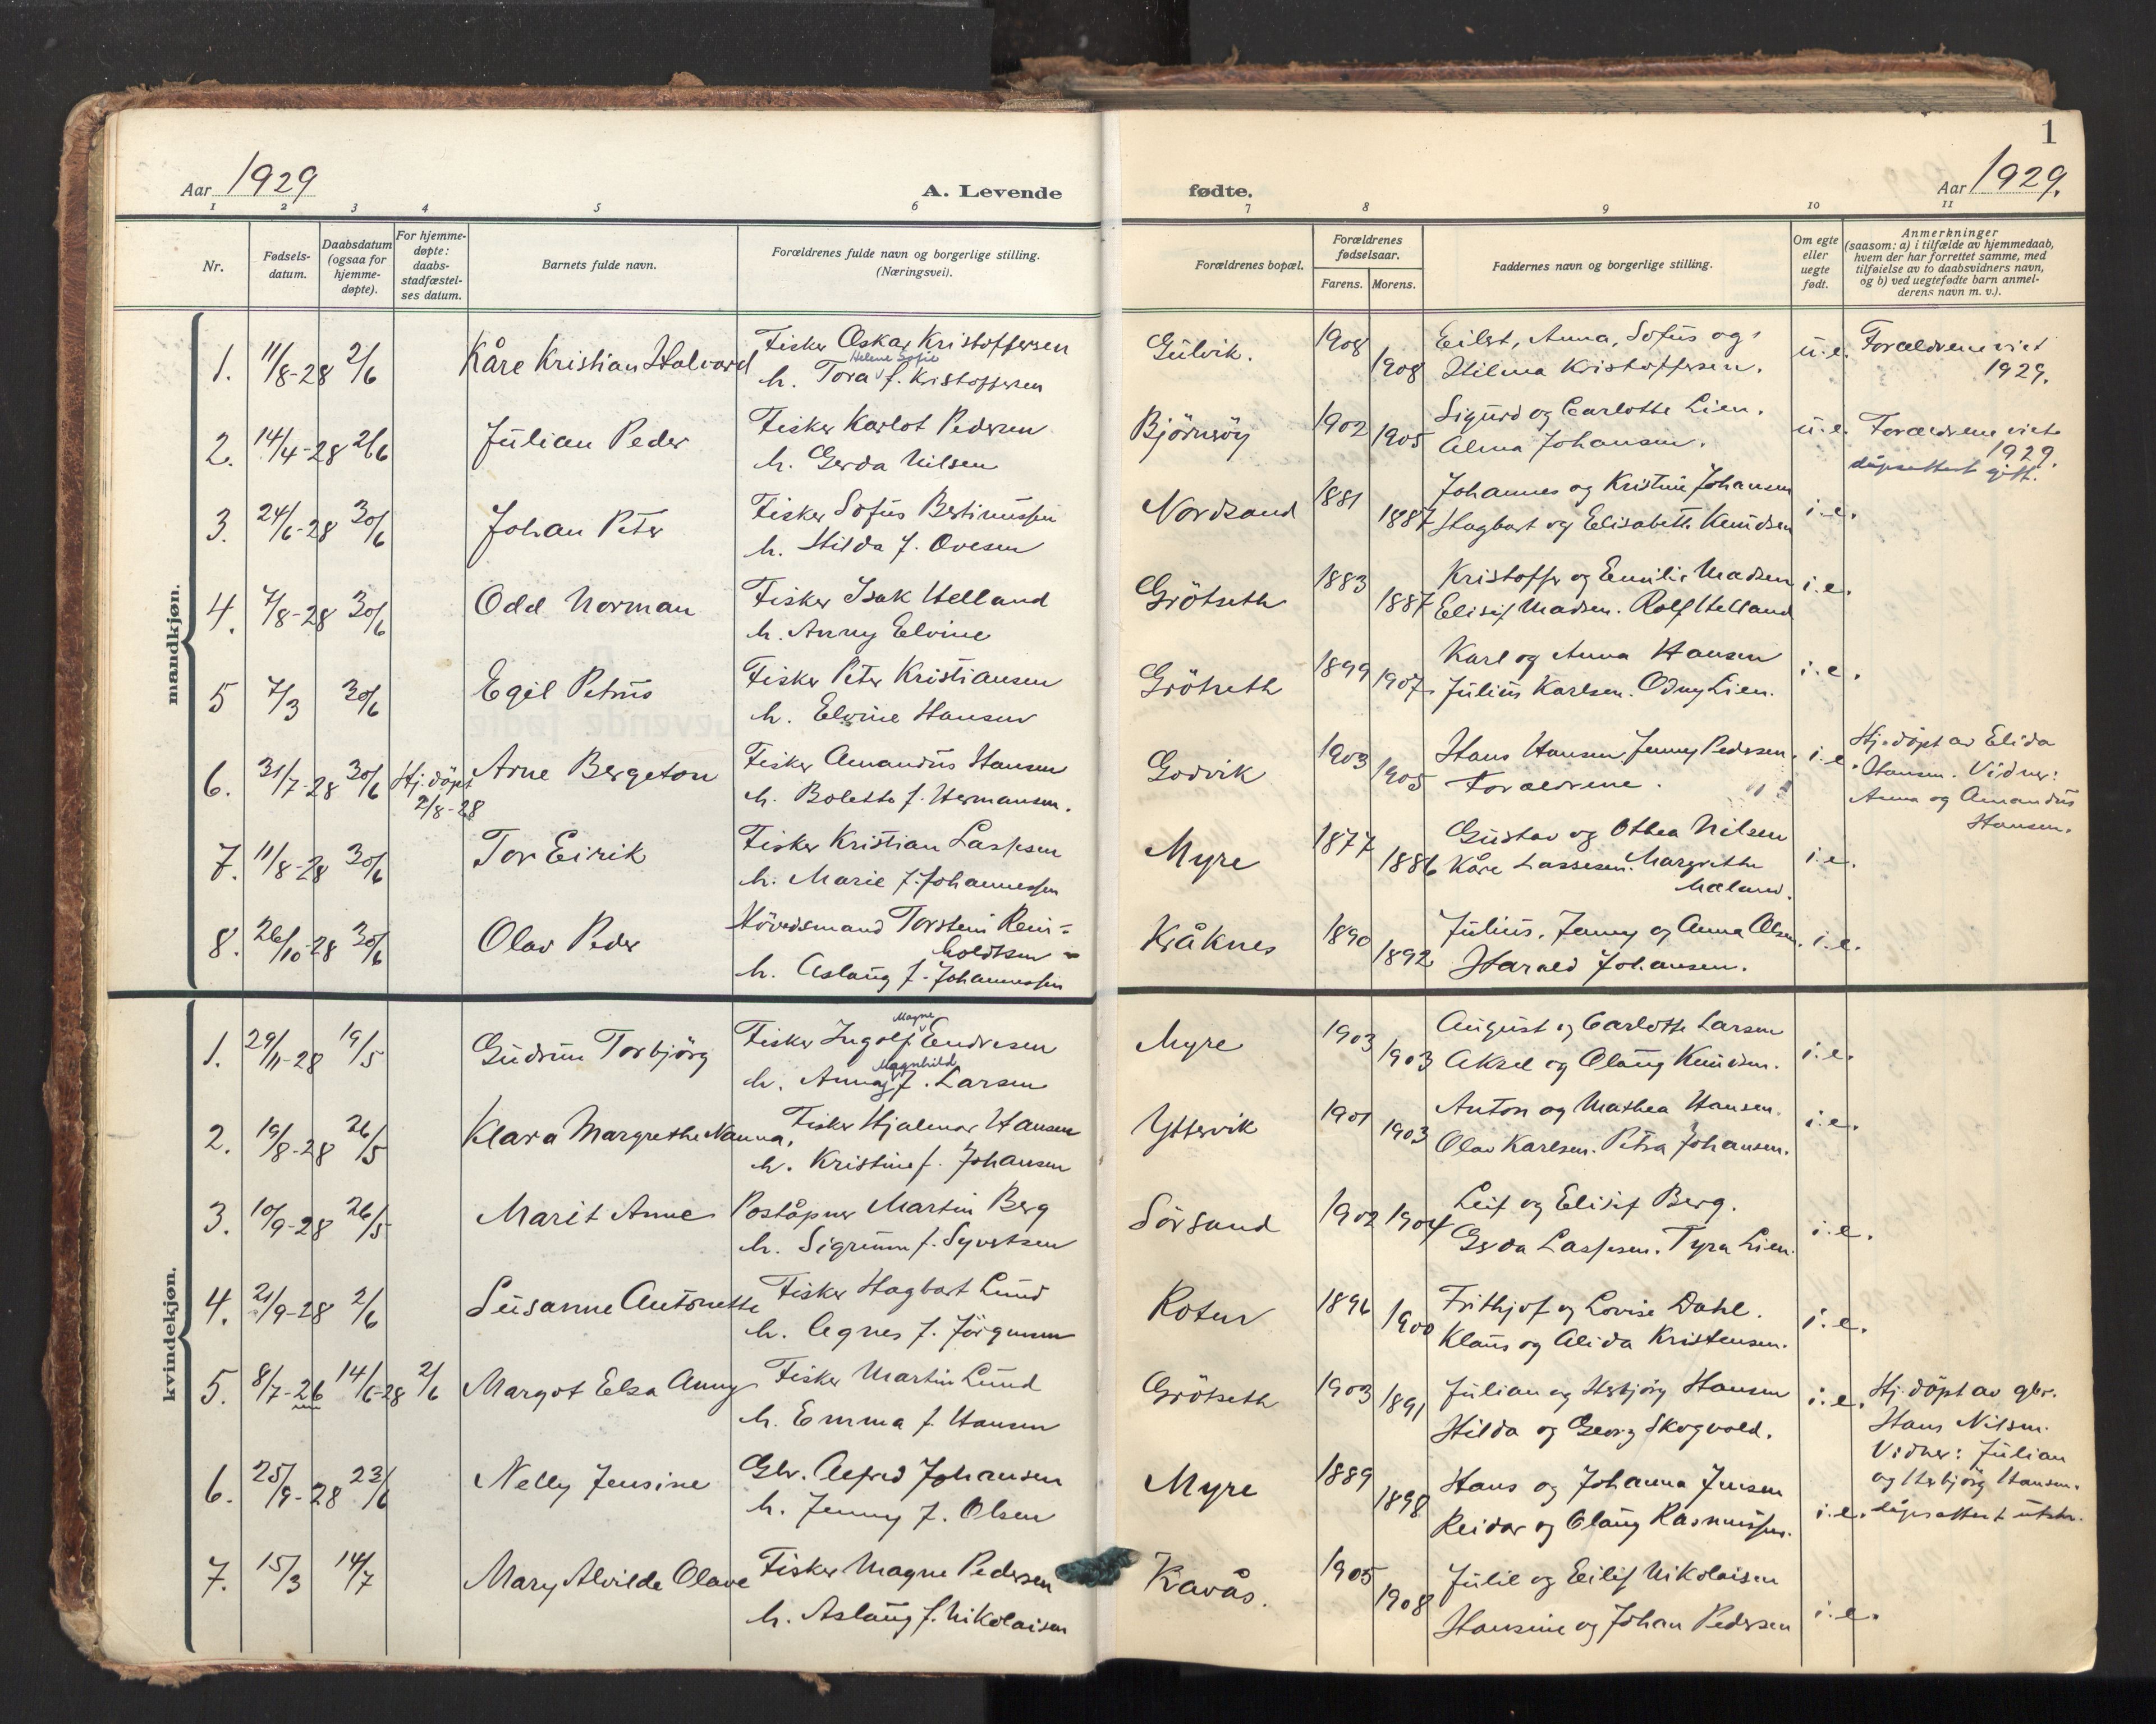 1
Aar 1929
A. Levende
fødte.
Aar 1929.
1 2 3 4 5 6 7 8 9 10 11
Nr.
Fødsels-
datum.
Daabsdatum
(ogsaa for
hjemme-
døpte).
For hjemme-
døpte:
daabs-
stadfæstel-
ses datum.
Barnets fulde navn.
Forældrenes fulde navn og borgerlige stilling.
(Næringsvei).
Forældrenes bopæl.
Forældrenes
fødselsaar.
Farens. Morens.
Faddernes navn og borgerlige stilling.
Om egte
eller
uegte
født.
Anmerkninger
(saasom: a) i tilfælde av hjemmedaab,
hvem der har forrettet samme, med
tilføielse av to daabsvidners navn,
og b) ved uegtefødte barn anmel-
derens navn m. v.).
mandkjøn.
1. 11/8-28 2/6 Kåre Kristian Halvard
Fisker Oskar Kristoffersen
Helene Sofie
h. Tora f. Kristoffersen
Gulvik. 1908 1908
Eilert, Anna, Sofus og
Hilma Kristoffersen.
u.e. Forældrene viet
1929.
2. 14/4-28 2/6 Julian Peder
Fisker Karlot Pedersen
h. Gerda Nilsen
Björnsöy 1902 1905
Sigurd og Carlotte Lien.
Alma Johansen.
u.e. Forældrene viet
1929.
dåpsattest gitt.
3. 24/6-28 30/6 Johan Peter
Fisker Sofus Bertinussen
h. Hilda f. Ovesen
Nordsand 1881 1887
Johannes og Kristine Johansen
Hagbart og Elisabeth Knudsen
i.e.
4. 7/8-28 30/6 Odd Norman
Fisker Isak Helland
h. Anny Elvine
Grötseth 1883 1887
Kristoffer og Emilie Madsen
Elisif Madsen. Rolf Helland
i.e.
5 7/3 30/6 Egil Petrus
Fisker Peter Kristiansen
h. Elvine Hansen
Grötseth 1899 1907.
Karl og Anna Hansen
Julius Karlsen. Odny Lien.
i.e.
6. 31/7-28 30/6 Hj. döpt
2/8-28
Arne Bergeton
Fisker Amandus Hansen
h. Bolette f. Hermansen.
Godvik 1903 1905
Hans Hansen, Jenny Pedersen.
Forældrene.
i.e. Hj. döpt av Elida
Hansen. Vidner:
Anna og Amandus
Hansen.
7. 11/8-28 30/6 Tor Eirik
Fisker Kristian Lassesen
h. Marie f. Johannessen
Myre 1877 1886
Gustav og Othea Nilsen
Kåre Lassesen. Margrethe
Mæland.
i.e.
8. 26/10-28 30/6 Olav Peder
Hövedsmand Torstein Rein-
holdtsen
h. Aslaug f. Johannessen
Kråknes 1890 1892
Julius, Jenny og Anna Olsen.
Harald Johansen.
i.e.
kvindekjøn.
1. 29/11-28 19/5 Gudrun Torbjörg
Magne
Fisker Ingolf Endresen
Magnhilde
h. Anna f. Larsen
Myre 1903 1903
August og Carlotte Larsen
Aksel og Olaug Knudsen.
i.e.
2. 19/8-28 26/5 Klara Margrethe Nanna.
Fisker Hjalmar Hansen
h. Kristine f. Johansen
Yttervik 1901 1903
Anton og Mathea Hansen.
Olav Karlsen. Petra Johansen.
i.e.
3. 10/9-28 26/5 Marit Anne
Poståpner Martin Berg
h. Sigrunn f. Syvertsen
Sörsand 1902 1904
Leif og Elisif Berg.
Gerda Lassesen. Tyra Lien.
i.e.
4. 21/9-28 2/6 Susanne Antonette
Fisker Hagbart Lund
h. Agnes f. Jörgensen
Roten 1896 1900
Frithjof og Lovise Dahl.
Klaus og Alida Kristensen.
i.e.
5. 8/7-26 14/6-28 2/6 Margot Elsa Anny
Fisker Martin Lund
h. Emma f. Hansen
Grötseth 1903 1891
Julian og Herbjörg Hansen
Hilda og Georg Skogvold.
i.e. Hj. döpt av gbr.
Hans Nilsen.
Vidner: Julian
og Herbjörg Hansen.
6. 25/9-28 23/6 Nelly Jensine
Gbr. Alfred Johansen
h. Jenny f. Olsen
Myre 1889 1898
Hans og Johanna Jensen
Reidar og Olaug Rasmussen.
i.e. dåpsattest utst.
7. 15/3 14/7 Mary Alvilde Olave
Fisker Magne Pedersen
h. Aslaug f. Nikolaisen
Kavås. 1905 1908
Julie og Eilif Nikolaisen
Hansine og Johan Pedersen
i.e.